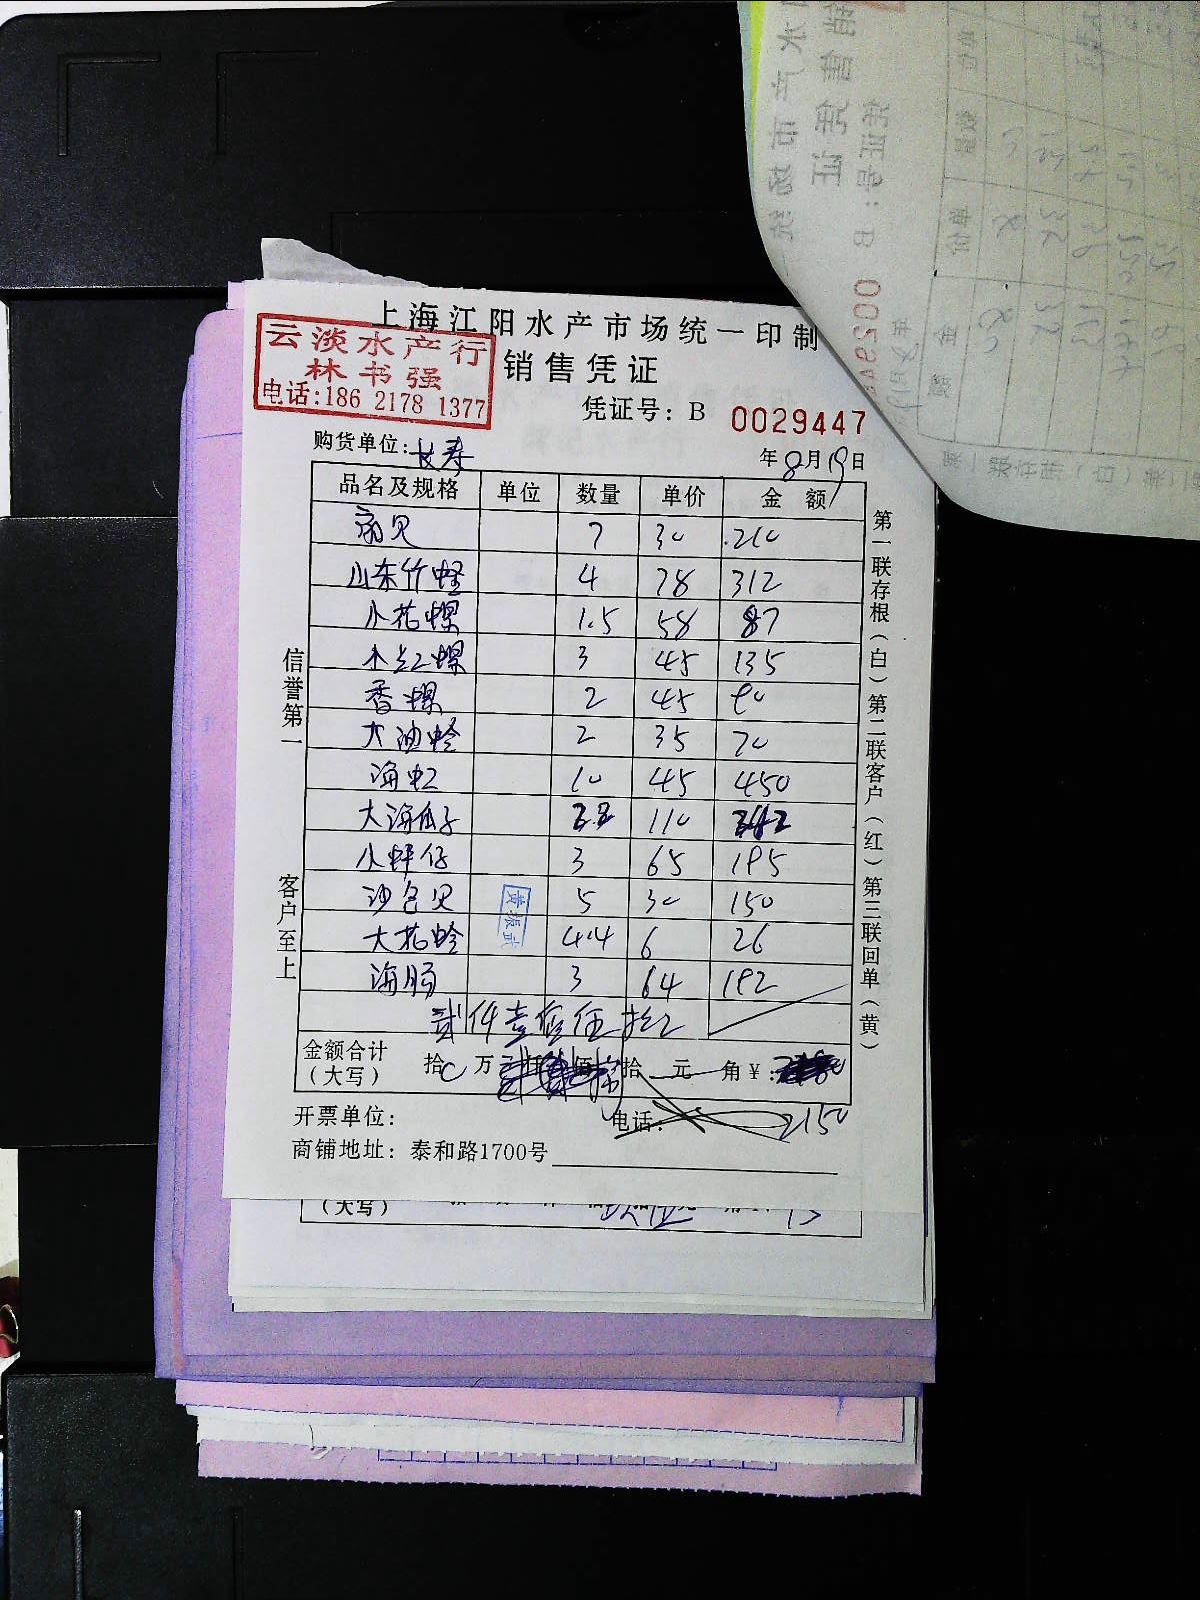 上海江阳水产市场统一印制
云淡水产行
林书强
电话:186 2178 1377
销售凭证
凭证号: B 0029447
购货单位: 长寿
年 8月19日
品名及规格 单位 数量 单价 金 额
扇贝 7 30 210
山东竹蛏 4 78 312
小花螺 1.5 58 87
小红螺 3 45 135
香螺 2 45 90
大油蛤 2 35 70
海虹 10 45 450
大海瓜子 110
小蚌仔 3 65 195
沙包贝 5 30 150
黄振武
大花蛤 4.4 6 26
海肠 3 64 192
贰仟壹佰伍拾
金额合计
(大写)
拾 万 仟 佰 拾 元 角 ¥:
开票单位:
电话: 2150
商铺地址: 泰和路1700号
信誉第一
客户至上
第一联存根(白)第二联客户(红)第三联回单(黄)
(大写)